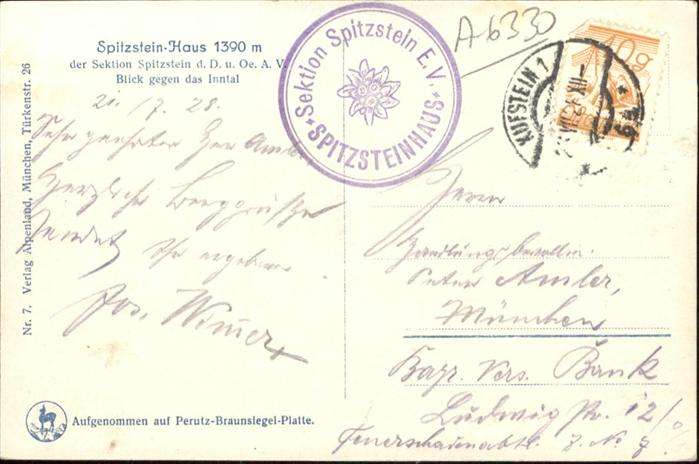 Spitzstein-Haus 1390 m
der Sektion Spitzstein d. D. u. Oe. A. V.
Blick gegen das Inntal
Sektion Spitzstein E.V.
SPITZSTEINHAUS
A 6330
KUFSTEIN 1
10 g
Nr. 7. Verlag Alpenland, München, Türkenstr. 26
20. 7. 28.
Sehr geehrter Herr Amler
Herzliche Berggrüße
sendet Ihr ergebener
Jos. Wimmer
Herrn
Handlungsbevollm.
Peter Amler,
München
Bayr. Vers. Bank
Ludwig Str. 12/
Feuerschadenabt. Z. No 7
Aufgenommen auf Perutz-Braunsiegel-Platte.